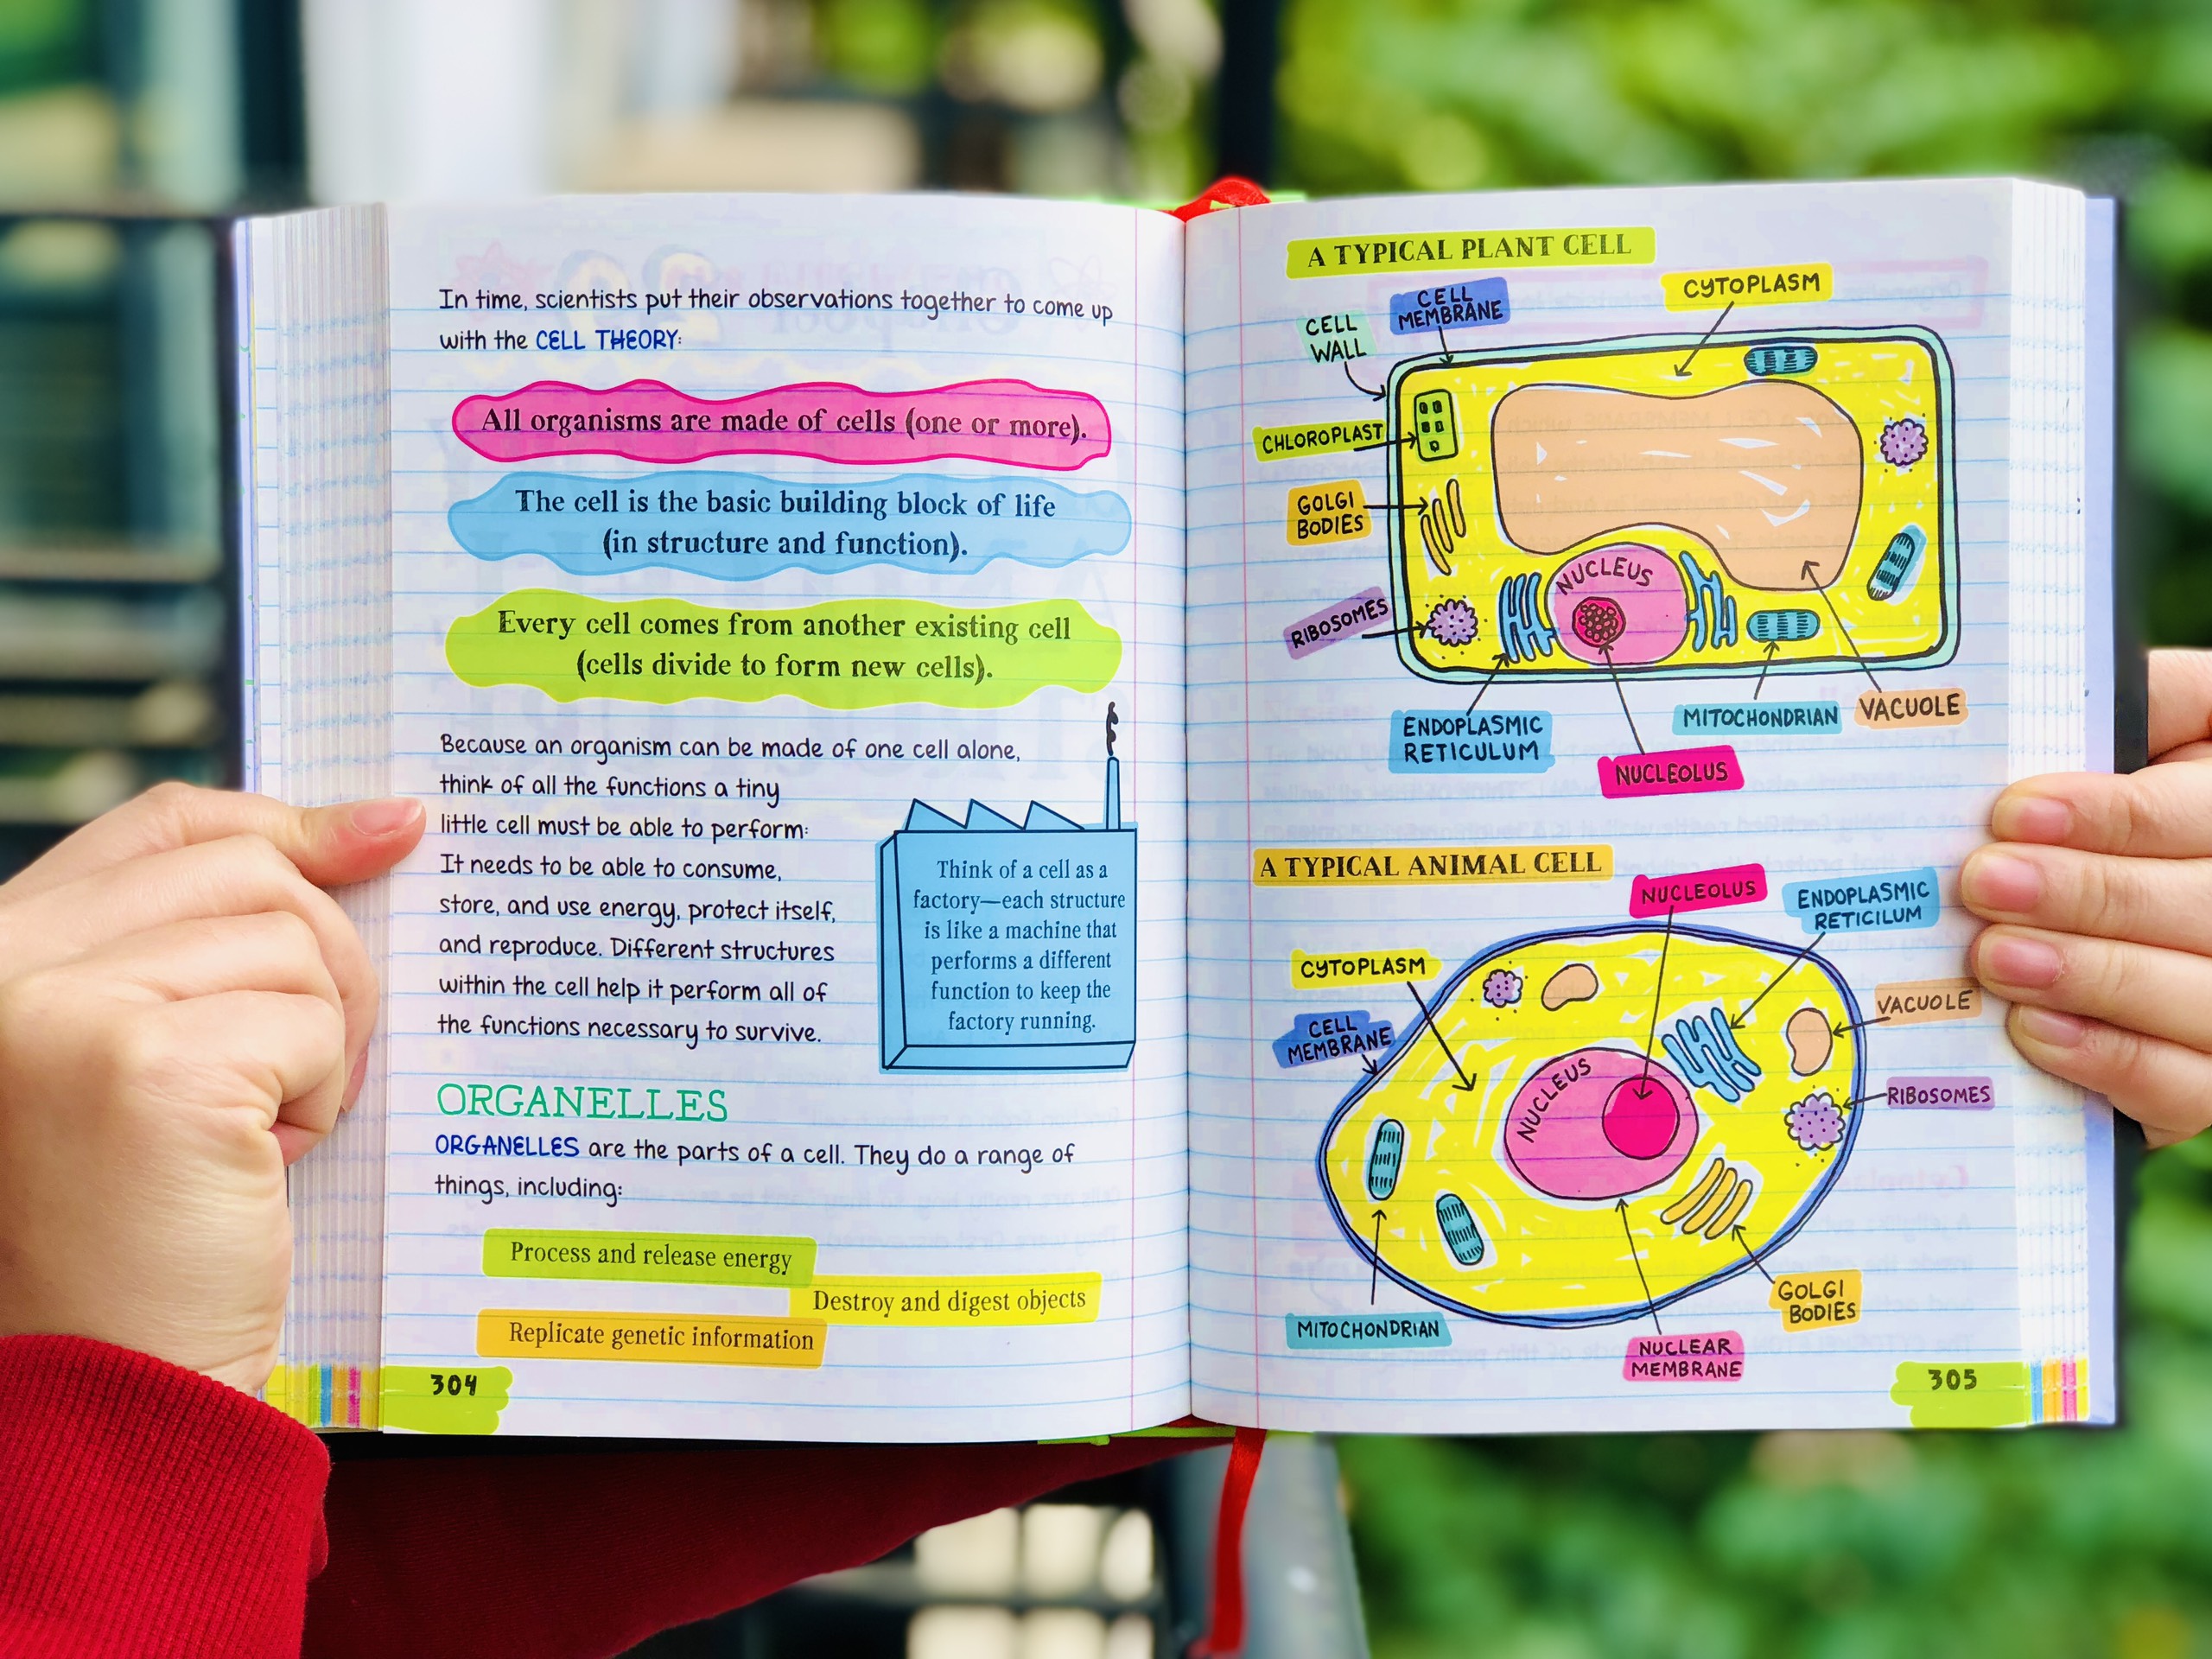 In time, scientists put their observations together to come up
with the CELL THEORY:
All organisms are made of cells (one or more).
The cell is the basic building block of life
(in structure and function).
Every cell comes from another existing cell
(cells divide to form new cells).
Because an organism can be made of one cell alone,
think of all the functions a tiny
little cell must be able to perform:
It needs to be able to consume,
store, and use energy, protect itself,
and reproduce. Different structures
within the cell help it perform all of
the functions necessary to survive.
Think of a cell as a
factory—each structure
is like a machine that
performs a different
function to keep the
factory running.
ORGANELLES
ORGANELLES are the parts of a cell. They do a range of
things, including:
Process and release energy
Destroy and digest objects
Replicate genetic information
304
A TYPICAL PLANT CELL
CELL
MEMBRANE
CYTOPLASM
CELL
WALL
CHLOROPLAST
GOLGI
BODIES
RIBOSOMES
NUCLEUS
ENDOPLASMIC
RETICULUM
NUCLEOLUS
MITOCHONDRIAN
VACUOLE
A TYPICAL ANIMAL CELL
NUCLEOLUS
ENDOPLASMIC
RETICILUM
CYTOPLASM
CELL
MEMBRANE
VACUOLE
NUCLEUS
RIBOSOMES
MITOCHONDRIAN
GOLGI
BODIES
NUCLEAR
MEMBRANE
305